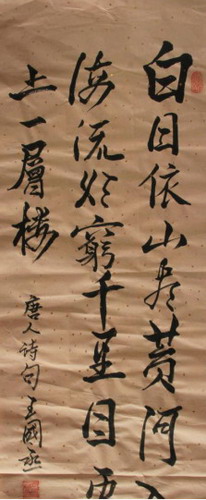 白日依山尽黄河入
海流欲穷千里目更
上一层楼
唐人诗句王国丞